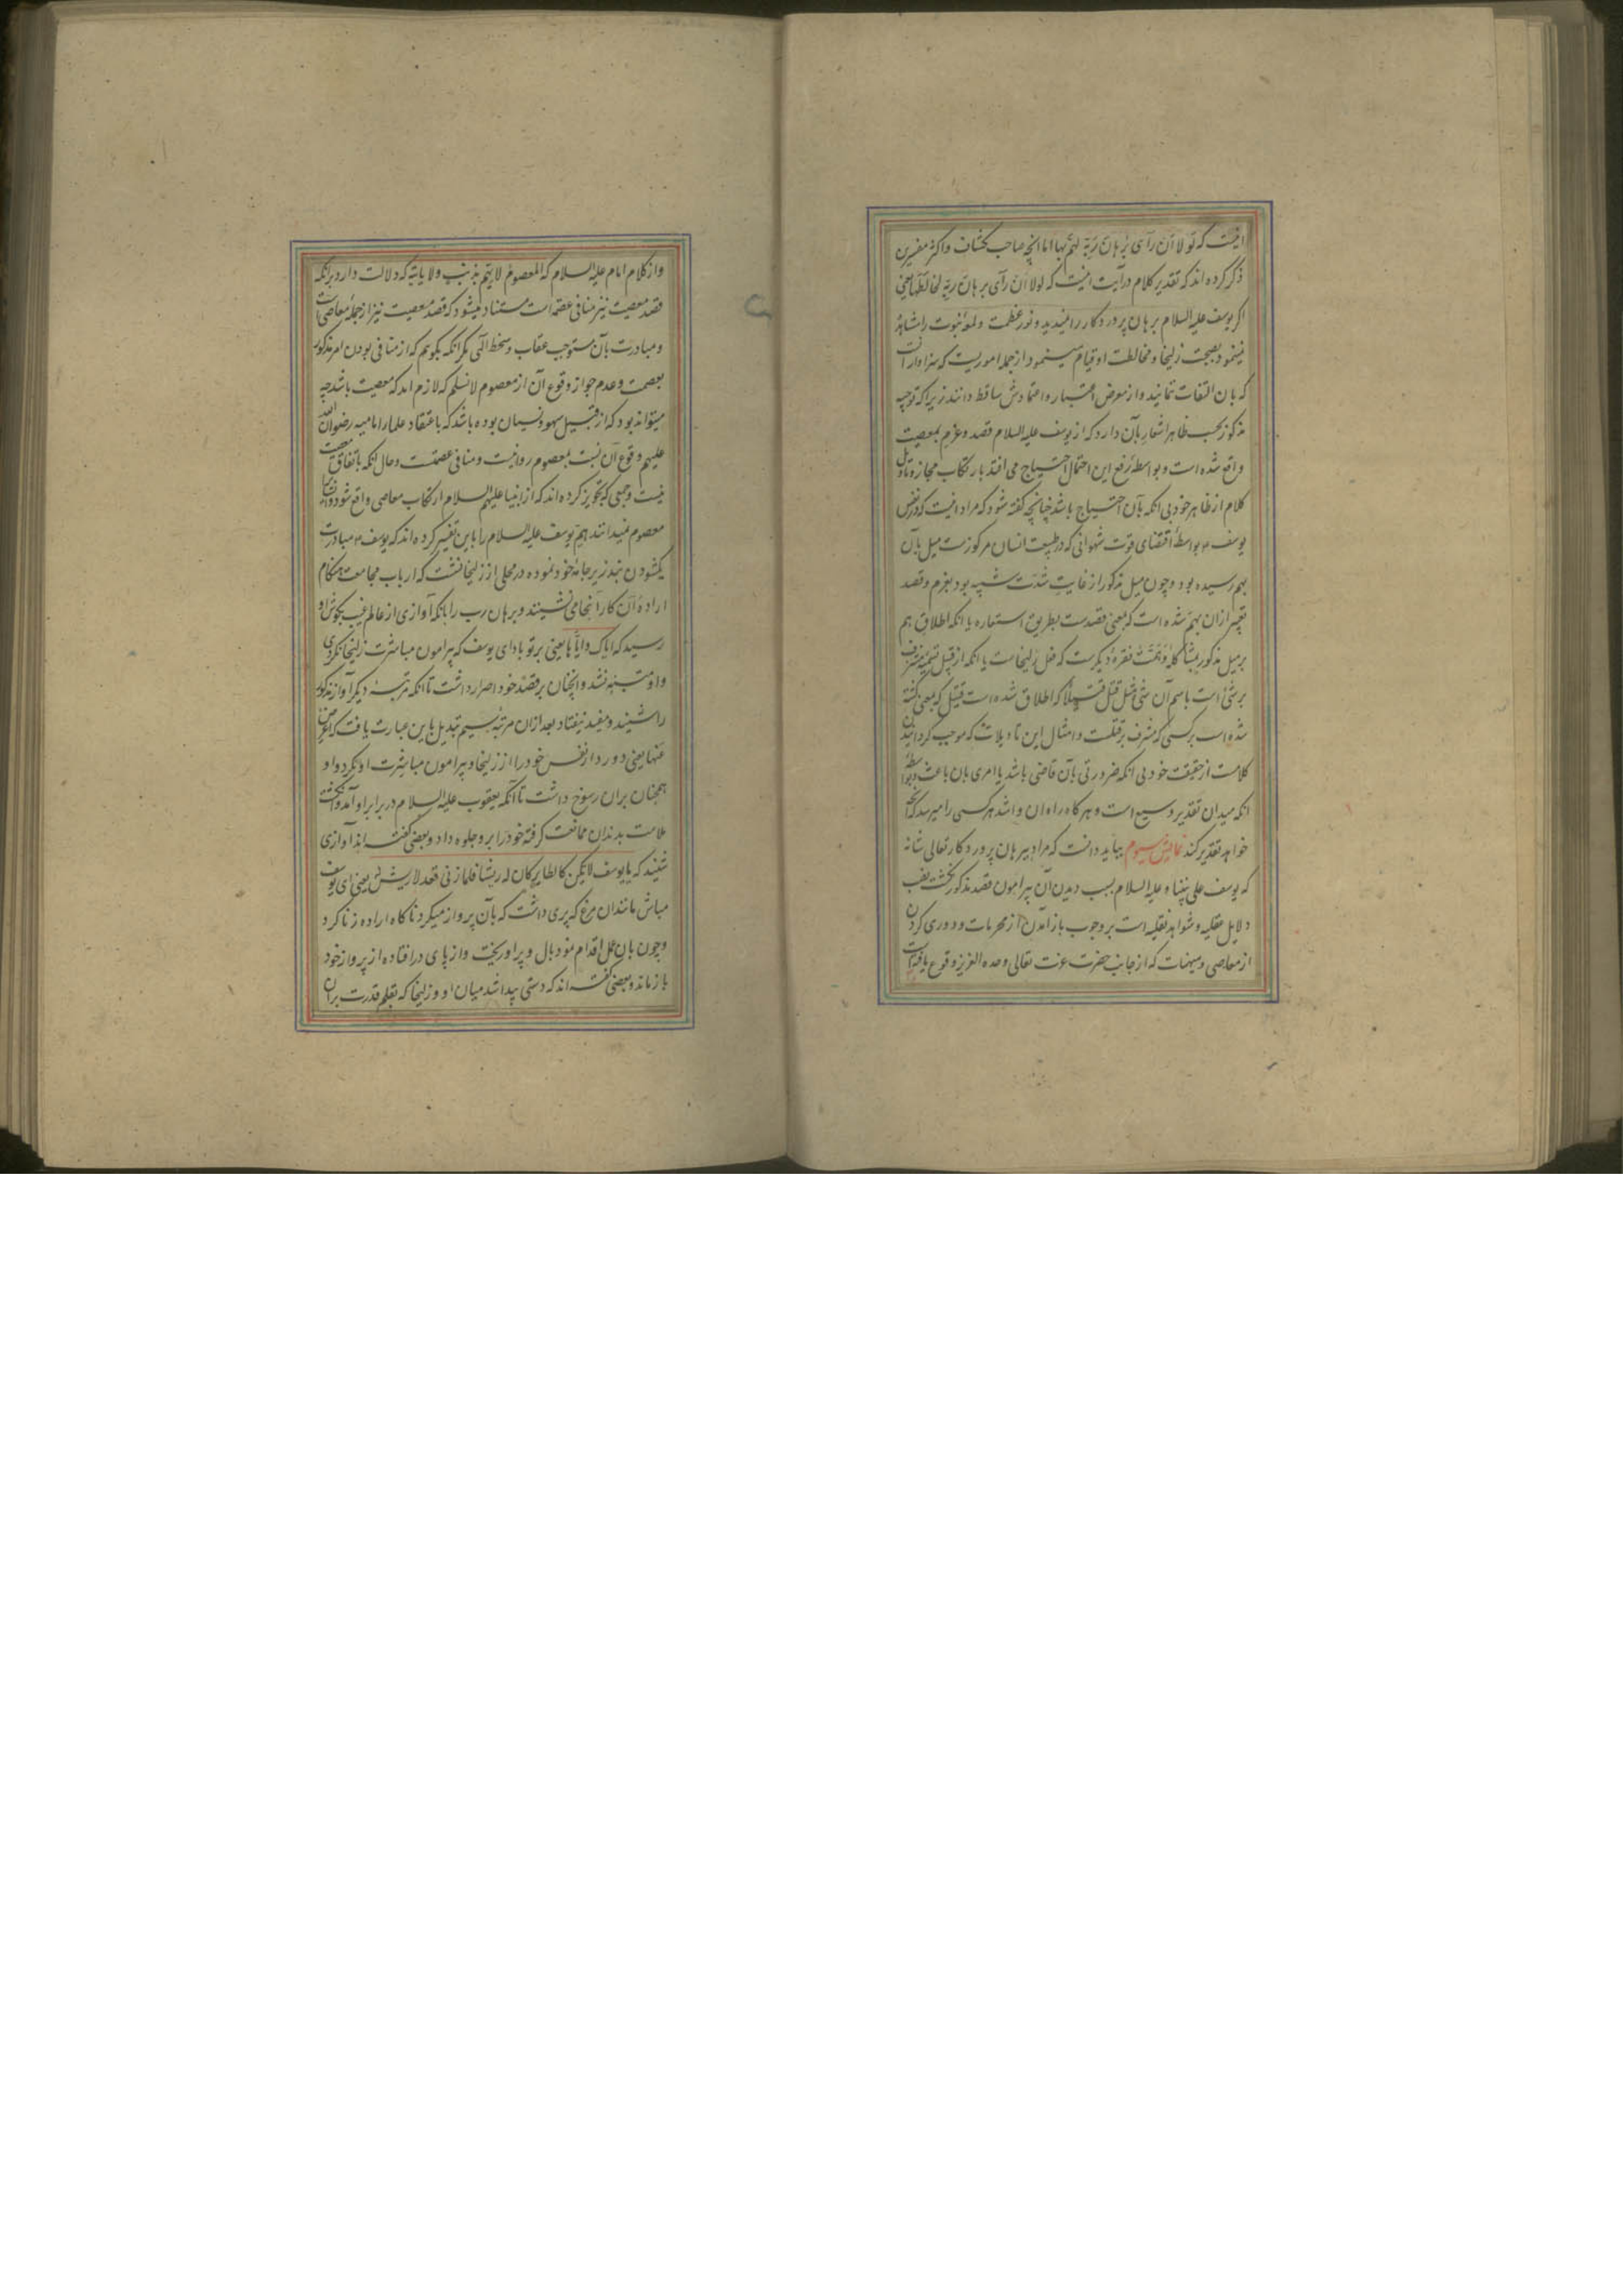 اینست که لَولا اَن رَآی بُرهانَ رَبّهِ لهَمّ بها اما انچه صاحب کشاف و اکثر مفسرین
ذکر کرده اند که تقدیر کلام درآیت اینست که لولا اَن رَآی برهانَ ربّهِ لخالَطَها یعنی
اکر یوسف علیه السلام برهان پروردکار را نمیدید و نور عظمت و لمعهٔ نبوت را مشاهدهٔ
نمینمود بصحبت زلیخا و مخالطت او قیام مینمود از جمله اموریست که سزاوار آنست
که بان التفات ننمایند و از معرض اعتبار و اعتمادش ساقط دانند زیرا که توجیه
مذکور بحسب ظاهر اشعار بآن دارد که از یوسف علیه السلام قصد و عزم بمعصیت
واقع شده است و بواسطهٔ رفع این احتمال احتیاج می افتد بارتکاب مجاز و تاویل
کلام از ظاهر خود بی انکه بآن احتیاج باشد چنانچه کفته شود که مراد اینست که در نفس
یوسف بواسطهٔ اقتضای قوت شهوانی که در طبیعت انسان مرکوزست میل بآن
بهم رسیده بود و چون میل مذکور از غایت شدت شبیه بود بعزم و قصد
تعبیر ازان بهَمّ شده است که بمعنی قصدست بطریق استعاره یا انکه اطلاق هم
بر میل مذکور بمشاکلهٔ وَهَمَّتْ فقرهٔ دیکرست که فعل زلیخاست یا انکه از قبیل تسمیهٔ مشرف
بر شئ است باسم آن شئ مثل قتل قتیلا که اطلاق شده است قتیل که بمعنی کشته
شده است بر کسی که مشرف بر قتلست و امثال این تاویلات که موجب کردانیدن
کلامست از حقیقت خود بی انکه ضرورتی بآن قاضی باشد یا امری بان باعث و بواسطهٔ
انکه میدان تقدیر وسیع است و هر کاه راه ان وا شد هر کسی را میرسد که انچه
خواهد تقدیر کند نمایش سیوم بباید دانست که مراد ببرهان پروردکار تعالی شانه
که یوسف علی نبینا و علیه السلام بسبب دیدن آن پیرامون قصد مذکور نکشت نصب
دلایل عقلیه و شواهد نقلیه است بر وجوب باز آمدن از محرمات و دوری کردن
از معاصی و منهیات که از جانب حضرت عزت تعالی وحده العزیز وقوع یافته است
و از کلام امام علیه السلام که المعصوم لا یهَمّ بذنب ولا یاتیه که دلالت دارد برانکه
قصد معصیت نیز منافی عصمت است مستفاد میشود که قصد معصیت نیز از جملهٔ معاصی است
و مبادرت بآن مستوجب عقاب و سخط الهی مکر انکه بکویم که از منافی بودن امر مذکور
بعصمت و عدم جواز وقوع آن از معصوم لا نسلم که لازم اید که معصیت باشد چه
میتواند بود که از قبیل سهو و نسیان بوده باشد که باعتقاد علمار امامیه رضوان الله
علیهم وقوع آن نسبت بمعصوم روا نیست و منافی عصمتست و حال انکه باتفاق معصیت
نیست و جمعی که تجویز کرده اند که از انبیا علیهم السلام ارتکاب معاصی واقع شود و ایشانرا
معصوم نمیدانند هَمّ یوسف علیه السلام را باین تفسیر کرده اند که یوسف مبادرت
بکشودن بند زیر جامهٔ خود نموده در محلی از زلیخا نشست که ارباب مجامعت هنکام
ارادهٔ آن کار آنجا می نشینند و برهان رب را بانکه آوازی از عالم غیب بکوش او
رسید که ایاک و ایّاها یعنی بر تو باد ای یوسف که پیرامون مباشرت زلیخا نکردی
و او متنبّه نشد و انچنان بر قصد خود اصرار داشت تا انکه مرتبهٔ دیکر آواز مذکور
را شنید و مفید نیفتاد بعد ازان مرتبهٔ سیم تبدیل باین عبارت یافت که اعرض
عنها یعنی دور دار نفس خود را از زلیخا و پیرامون مباشرت او نکرد و او
همچنان بران رسوخ داشت تا آنکه یعقوب علیه السلام در برابر او آمد و انکشت
ملامت بدندان ممانعت کرفته خود را برو جلوه داد و بعضی کفته اند آوازی
شنید که یا یوسف لا تکن کالطایر کان له ریشا فلما زنی قعد لا ریش له یعنی ای یوسف
مباش مانند ان مرغ که پری داشت که بآن پرواز میکرد ناکاه اراده زنا کرد
و چون بان عمل اقدام نمود بال و پر او ریخت و از پای در افتاده از پرواز خود
باز ماند و بعضی کفته اند که دستی پیدا شد میان او و زلیخا که بقلم قدرت بران